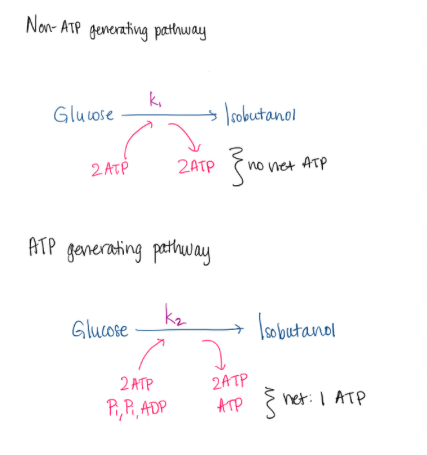 Non-ATP generating pathway
k₁
Glucose → Isobutanol
2ATP 2ATP } no net ATP
ATP generating pathway
k₂
Glucose → Isobutanol
2ATP 2ATP
Pi, Pi, ADP ATP } net: 1 ATP